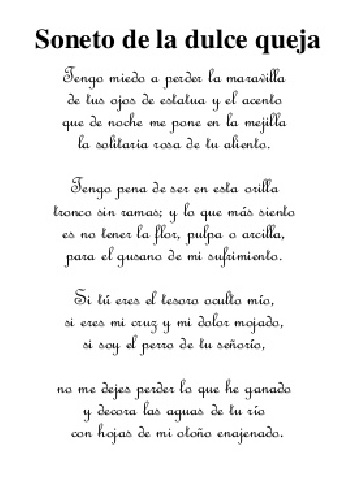 Soneto de la dulce queja
Tengo miedo a perder la maravilla
de tus ojos de estatua y el acento
que de noche me pone en la mejilla
la solitaria rosa de tu aliento.
Tengo pena de ser en esta orilla
tronco sin ramas; y lo que más siento
es no tener la flor, pulpa o arcilla,
para el gusano de mi sufrimiento.
Si tú eres el tesoro oculto mío,
si eres mi cruz y mi dolor mojado,
si soy el perro de tu señorío,
no me dejes perder lo que he ganado
y decora las aguas de tu río
con hojas de mi otoño enajenado.